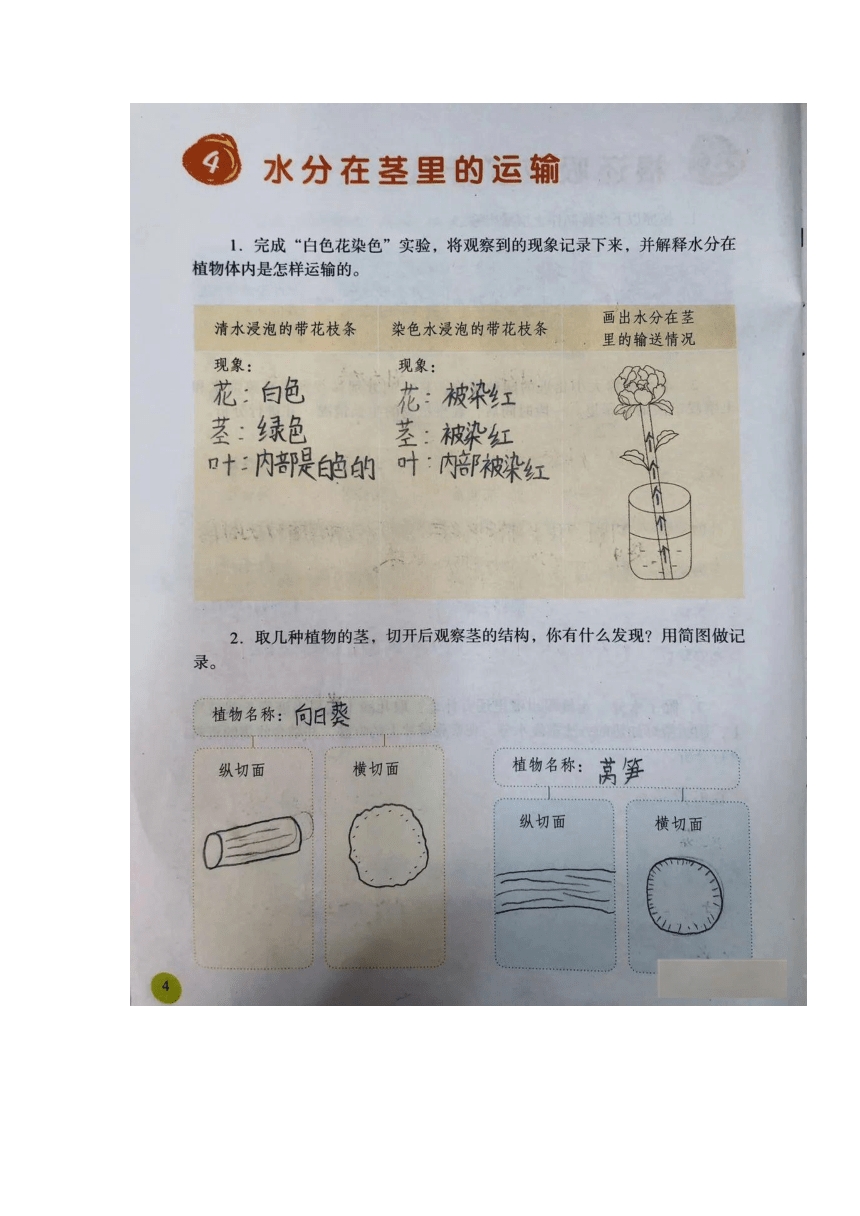 4 水分在茎里的运输
1. 完成“白色花染色”实验，将观察到的现象记录下来，并解释水分在
植物体内是怎样运输的。
清水浸泡的带花枝条 染色水浸泡的带花枝条 画出水分在茎
里的输送情况
现象： 现象：
花：白色 花：被染红
茎：绿色 茎：被染红
叶：内部是白色的 叶：内部被染红
2. 取几种植物的茎，切开后观察茎的结构，你有什么发现？用简图做记
录。
植物名称：向日葵
纵切面 横切面
植物名称：莴笋
纵切面 横切面
4